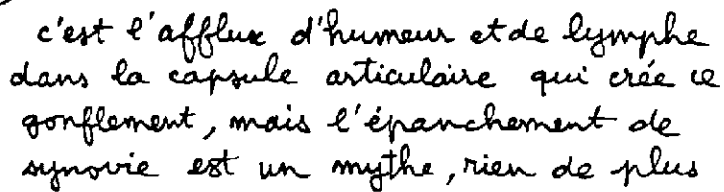 c'est l'afflux d'humeur et de lymphe
dans la capsule articulaire qui crée ce
gonflement, mais l'épanchement de
synovie est un mythe, rien de plus